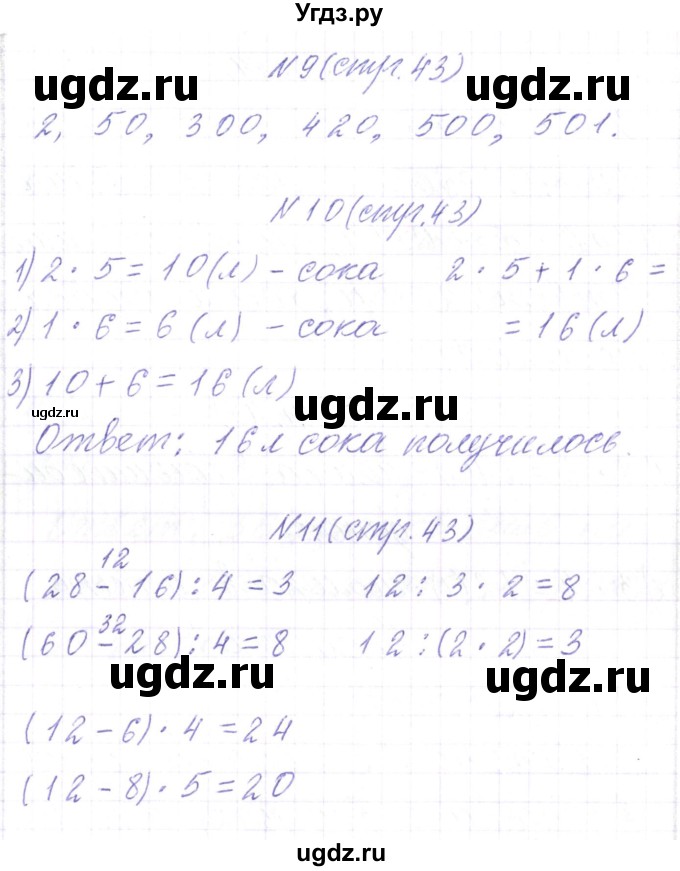 Угдз.ру
№9(стр.43)
ugdz.ru ugdz.ru
2, 50, 300, 420, 500, 501.
№10(стр.43)
1) 2 · 5 = 10(л) - сока 2 · 5 + 1 · 6 =
2) 1 · 6 = 6 (л) - сока = 16 (л)
3) 10 + 6 = 16 (л)
ugdz.ru ugdz.ru
Ответ: 16 л сока получилось.
№11(стр.43)
12
(28 - 16) : 4 = 3 12 : 3 · 2 = 8
32
(60 - 28) : 4 = 8 12 : (2 · 2) = 3
ugdz.ru ugdz.ru
(12 - 6) · 4 = 24
(12 - 8) · 5 = 20
ugdz.ru